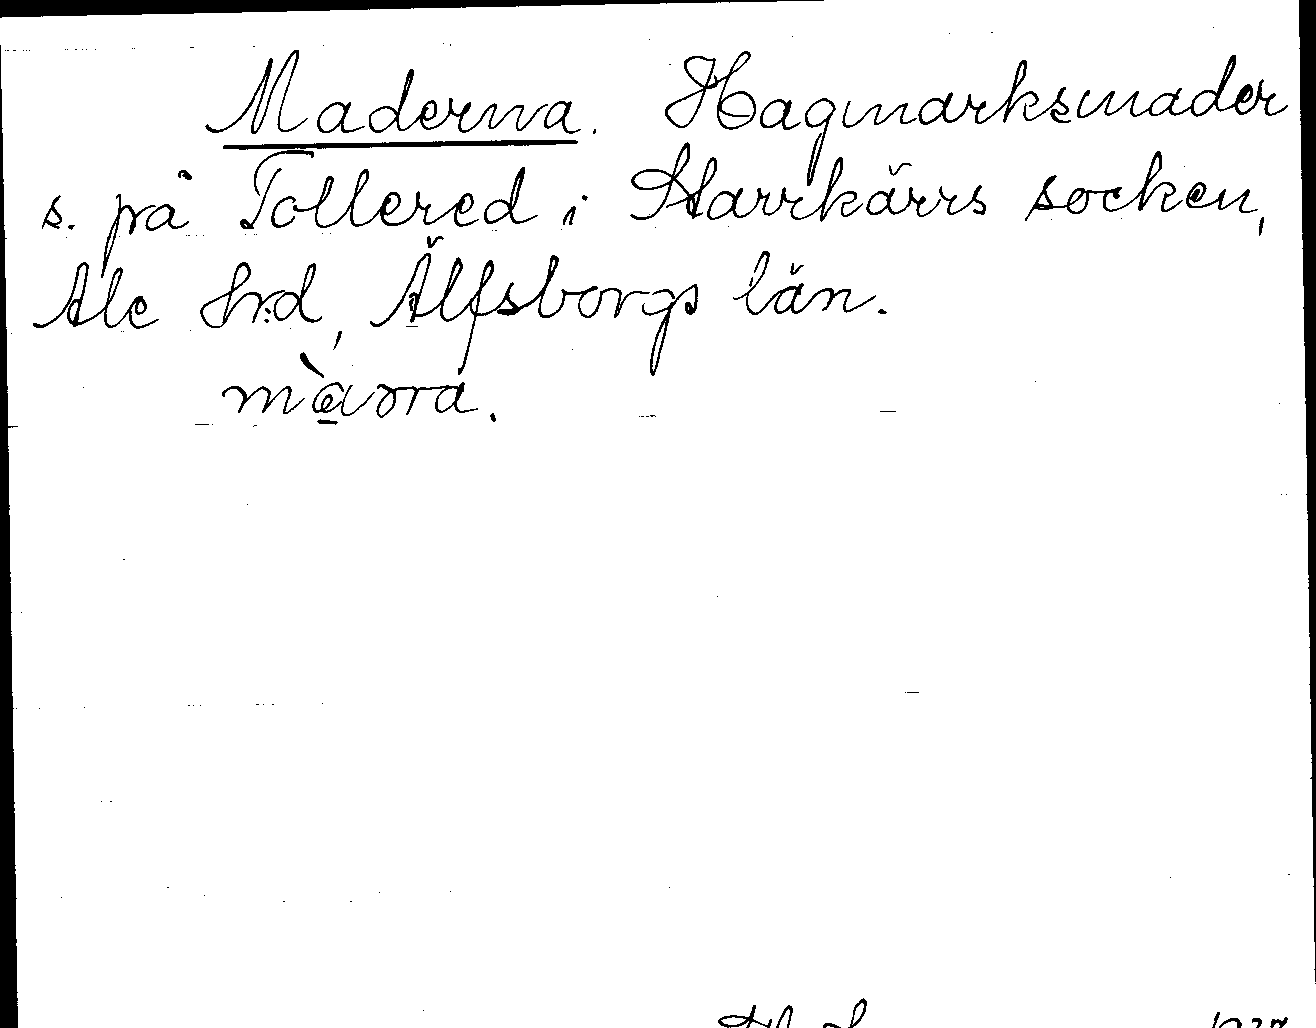 Maderna. Hagmarksmader
s. på Tollered i Starrkärrs socken,
Ale hrd, Älfsborgs län.